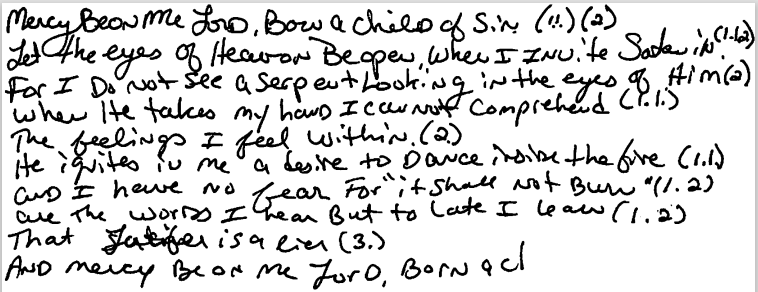 Mercy Be on Me Lord, Born a Child of Sin (1.) (2)
Let the eyes of Heaven Be open, when I Invite Satan in. (1.2)
For I Do not see a serpent Looking in the eyes of Him (2)
when He takes my hand I can not Comprehend (1.1.)
The feelings I feel within. (2.)
He ignites in me a desire to Dance inside the fire (1.1)
and I have no fear For "it shall not Burn" (1.2)
are The words I hear But to Late I learn (1.2)
That is a lier (3.)
AND mercy Be on me Lord, Born a cl